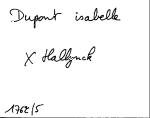 Dupont isabelle
X Hallynck
1762/5